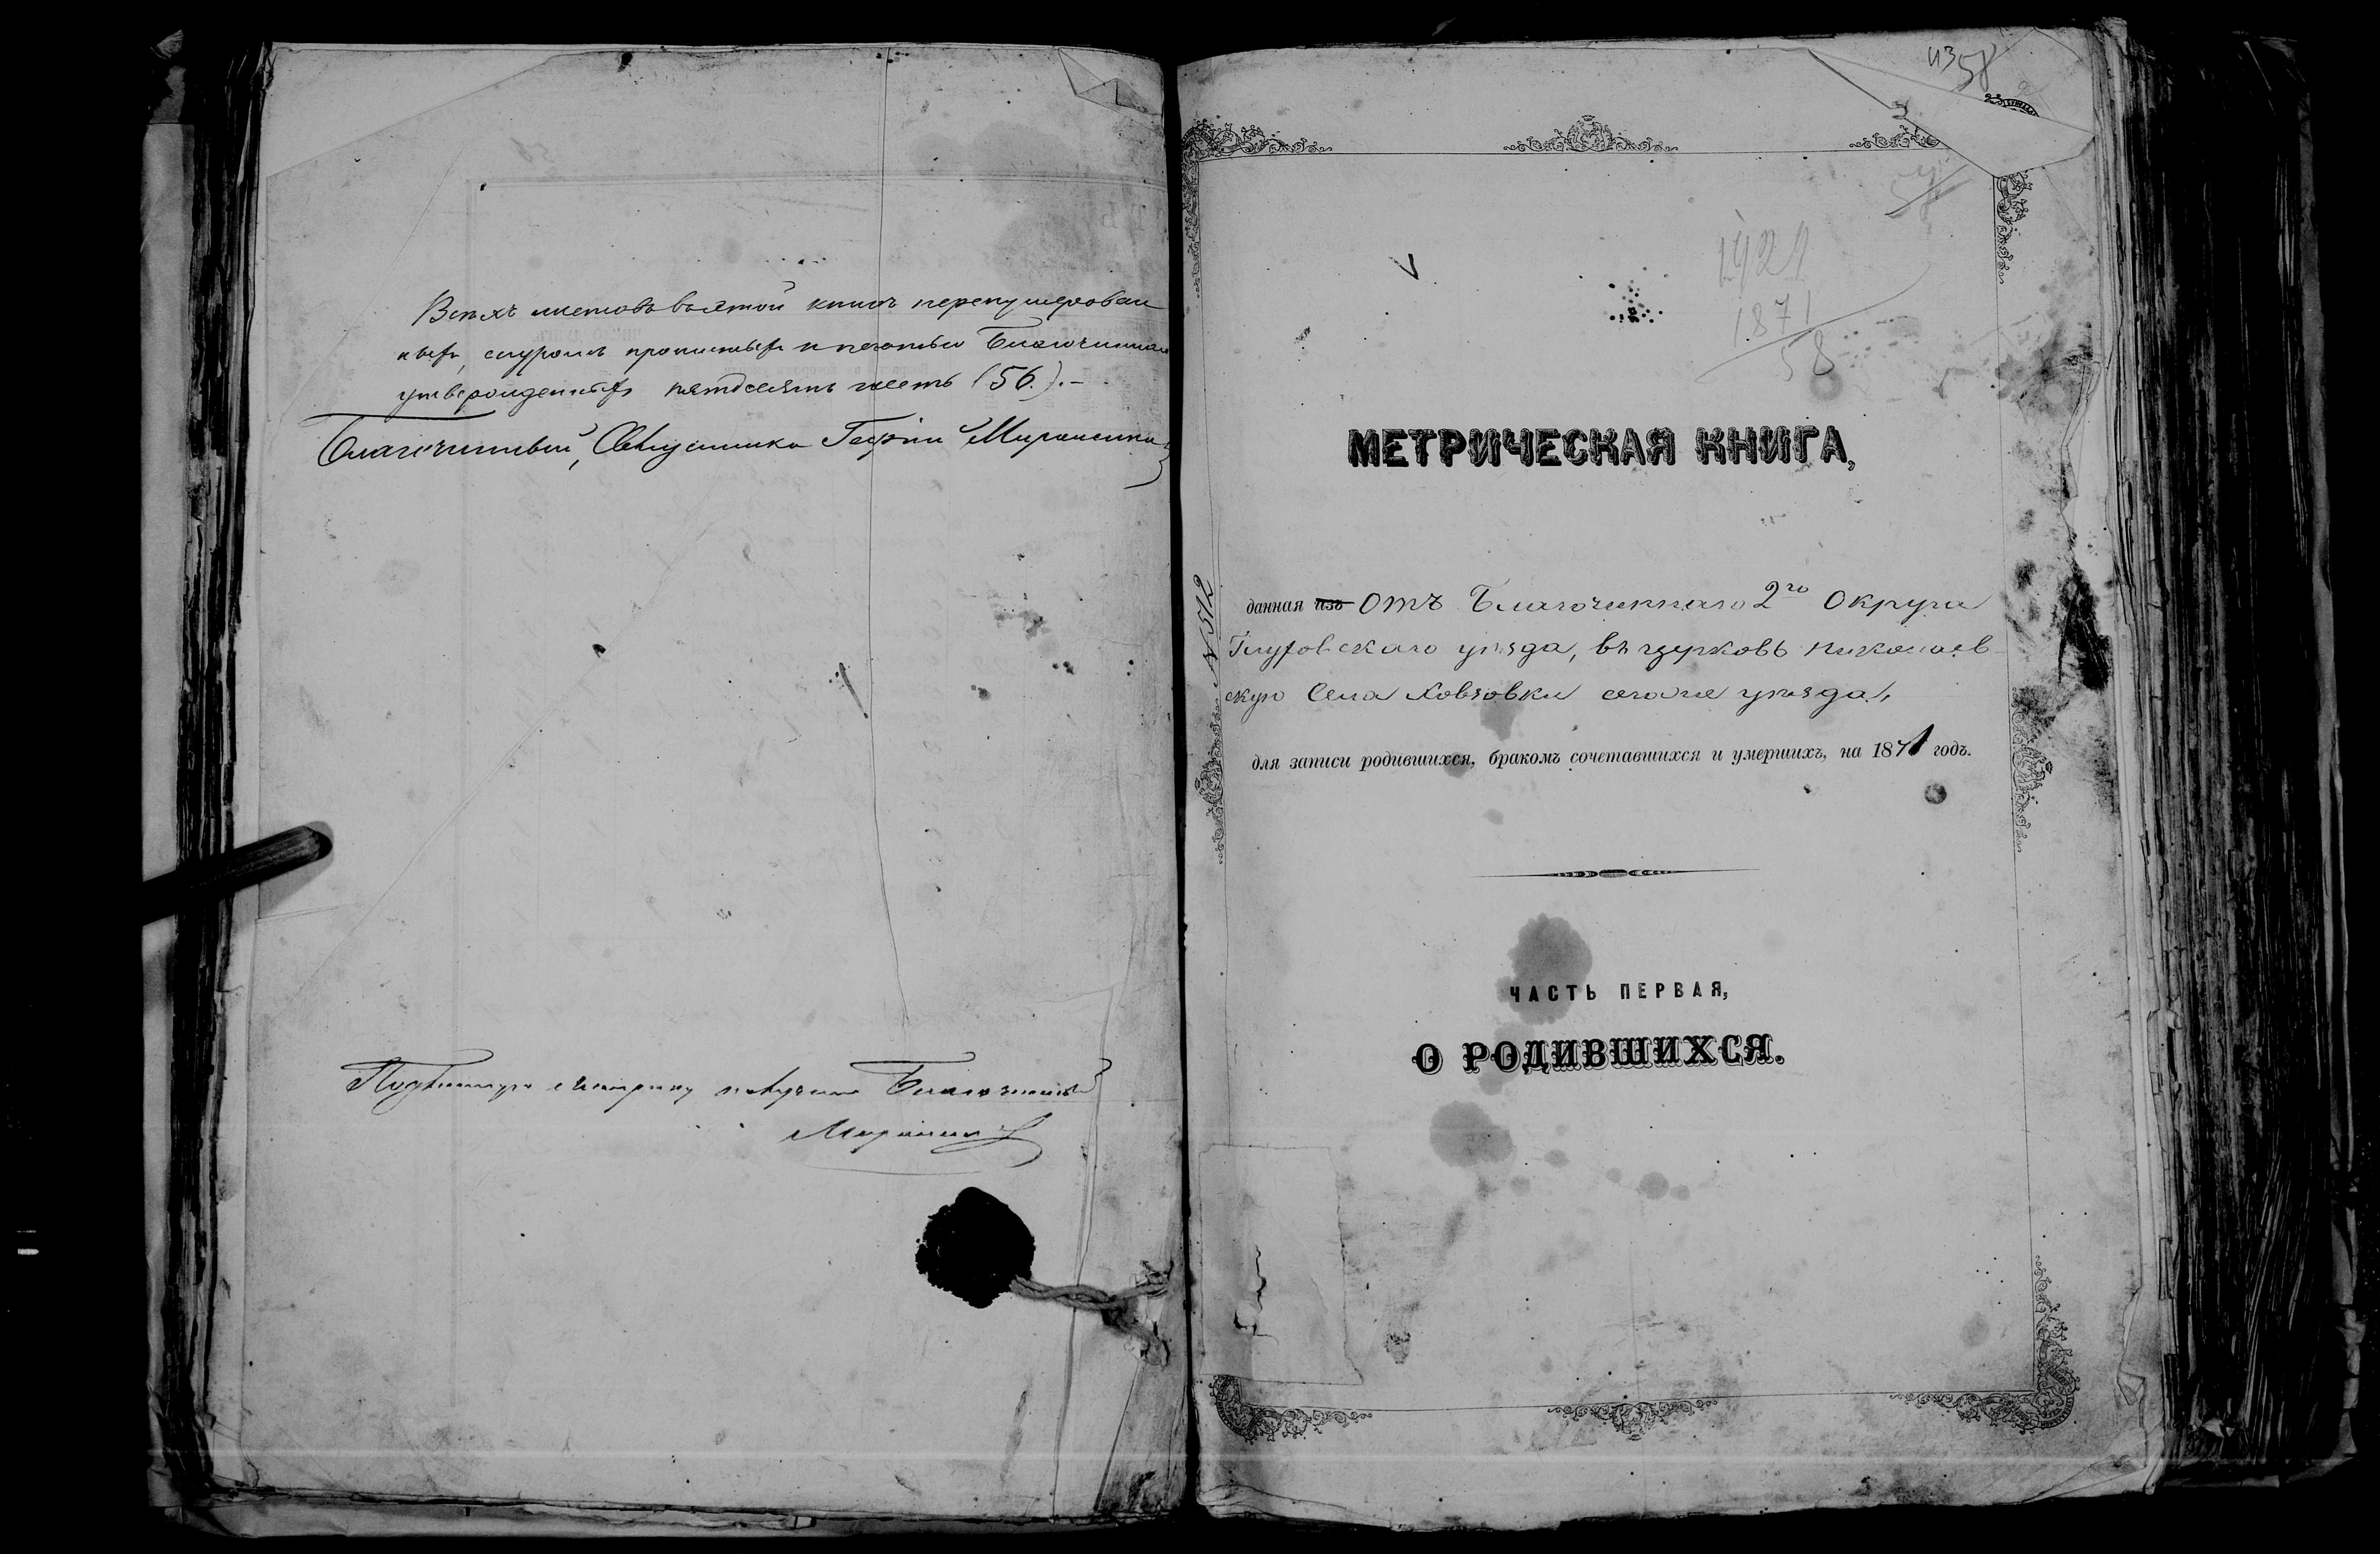 Всѣхъ листовъ въ этой книгѣ перенумерован
ныхъ, шнуромъ прошитыхъ и печатью Благочиннаго
утвержденныхъ пятьдесятъ шесть (56).–
Благочинный, Священникъ Георгій
Подлинную метрику получилъ Благочинный
58
1921
1871
58
МЕТРИЧЕСКАЯ КНИГА,
№ 512
данная изъ отъ Благочиннаго 2го Округа
Глуховскаго уѣзда, въ церковь Николаев
скую Села Ховзовки сего же уѣзда,
для записи родившихся, бракомъ сочетавшихся и умершихъ, на 1871 годъ.
ЧАСТЬ ПЕРВАЯ,
О РОДИВШИХСЯ.